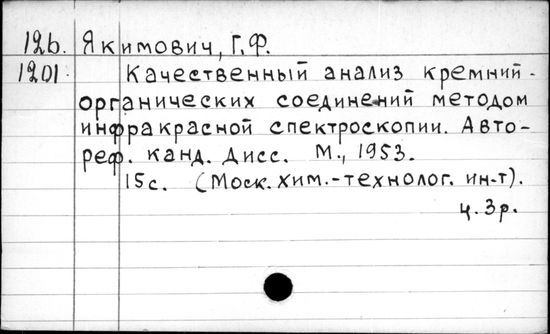 12б. Якимович, Г.Ф.
1201. Качественный анализ кремний-
органических соединений методом
инфракрасной спектроскопии. Авто-
реф. канд. дисс. М., 1953.
15с. (Моск. хим.-технолог. ин-т).
ц. 3р.